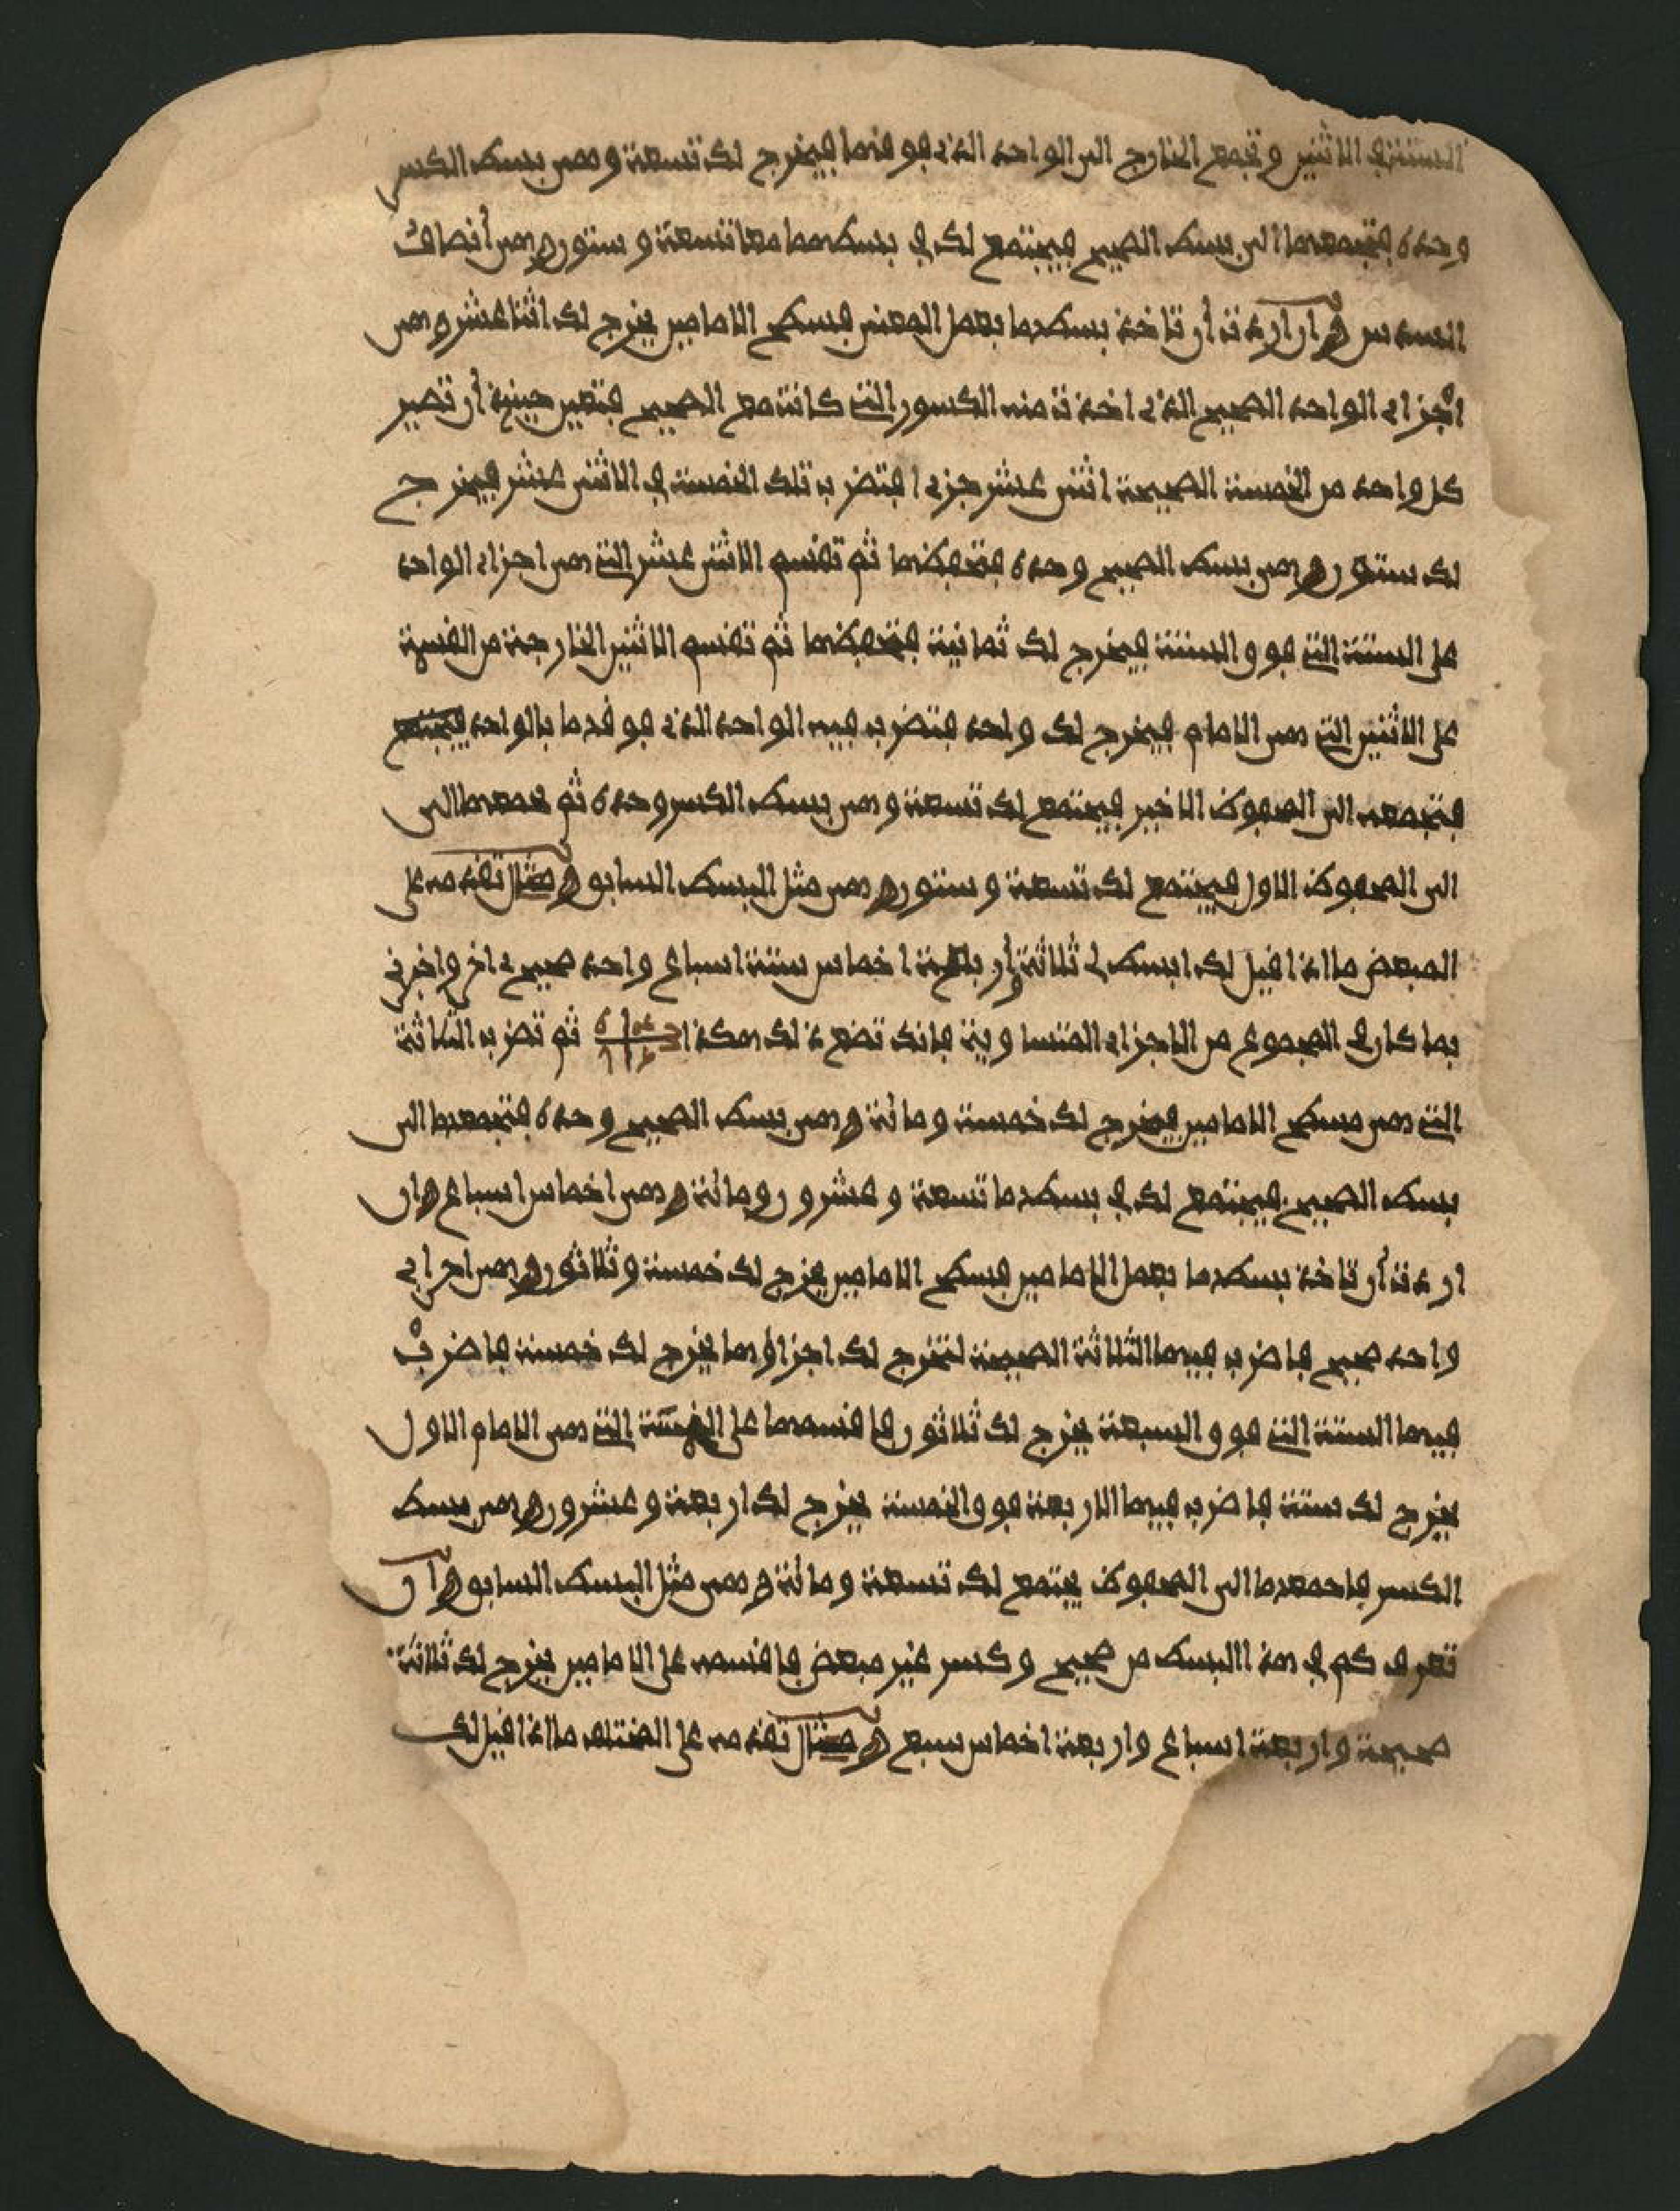 الستة في الاثنين وتجمع الخارج الى الواحد الذي فوقهما فيخرج لك تسعة وهي بسط الكسر
وحده فتجمعها الى بسط الصحيح فيجتمع لك في بسطهما معا تسعة وستون وهي أنصاف
السدس وان اردت أن تاخذ بسطها بعمل البعض فسطح الامامين يخرج لك اثنا عشر وهي
اجزاء الواحد الصحيح الذي اخذت منه الكسور التي كانت مع الصحيح فتعين حينئذ أن تصير
كل واحد من الخمسة الصحيحة اثني عشر جزءا فتضرب تلك الخمسة في الاثني عشر فيخرج
لك ستون وهي بسط الصحيح وحده فتحفظها ثم تقسم الاثني عشر التي هي اجزاء الواحد
على الستة التي فوق الستة فيخرج لك ثمانية فتحفظها ثم تقسم الاثنين الخارجة من القسمة
على الاثنين التي هي الامام فيخرج لك واحد فتضرب فيه الواحد الذي فوقها بالواحد فيجتمع
فتجمعه الى المحفوظ الاخير فيجتمع لك تسعة وهي بسط الكسر وحده ثم تجمعها الى
الى المحفوظ الاول فيجتمع لك تسعة وستون وهي مثل البسط السابق ومثال تقدمه على
المبعض ما اذا قيل لك ابسط لي ثلاثة وأربعة اخماس ستة اسباع واحد صحيح اخر واخبرني
بما كان في المجموع من الاجزاء المتساوية فانك تضع ذلك هكذا ثم تضرب الثلاثة
التي هي مسطح الامامين فيخرج لك خمسة ومائة وهي بسط الصحيح وحده فتجمعها الى
بسط الصحيح فيجتمع لك في بسطها تسعة وعشرون ومائة وهي اخماس اسباع وان
اردت أن تاخذ بسطها بعمل الامامين فسطح الامامين يخرج لك خمسة وثلاثون وهي اجزاء
واحد صحيح فاضرب فيها الثلاثة الصحيحة لتخرج لك اجزاؤها يخرج لك خمسة فاضرب
فيها الستة التي فوق السبعة يخرج لك ثلاثون فاقسمها على الخمسة التي هي الامام الاول
يخرج لك ستة فاضرب فيها الاربعة فوق الخمسة يخرج لك اربعة وعشرون وهي بسط
الكسر فاجمعها الى المحفوظ يجتمع لك تسعة ومائة وهي مثل البسط السابق وان
تعرف كم في هذا البسط من صحيح وكسر غير مبعض فاقسمه على الامامين يخرج لك ثلاثة
صحيحة واربعة اسباع واربعة اخماس سبع ومثال تقدمه على المختلف ما اذا قيل لك